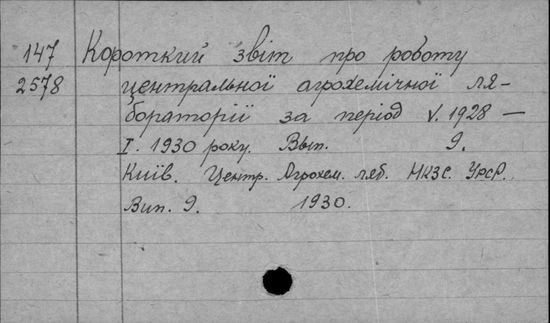 147 Короткий звіт про роботу
2578 центральної агрохемічної ля-
бораторії за період V. 1928 —
I. 1930 року. Вып. 9.
Київ. Центр. Агрохем. ляб. НКЗС. УРСР.
Вип. 9. 1930.